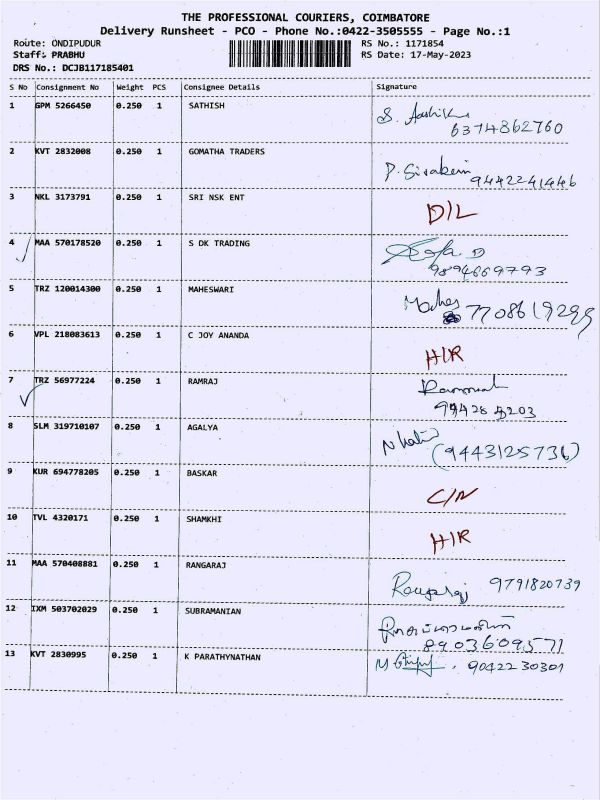 THE PROFESSIONAL COURIERS, COIMBATORE
Delivery Runsheet - PCO - Phone No.:0422-3505555 - Page No.:1
Route: ONDIPUDUR RS No.: 1171854
Staff: PRABHU RS Date: 17-May-2023
DRS No.: DCJB117185401
S No Consignment No Weight PCS Consignee Details Signature
1 GPM 5266450 0.250 1 SATHISH
6374862760
2 KVT 2832008 0.250 1 GOMATHA TRADERS
9442241446
3 NKL 3173791 0.250 1 SRI NSK ENT D/L
4 MAA 570178520 0.250 1 S DK TRADING
9894669793
5 TRZ 120014300 0.250 1 MAHESWARI Mahes
7708619299
6 VPL 218083613 0.250 1 C JOY ANANDA H/R
7 TRZ 56977224 0.250 1 RAMRAJ
8 SLM 319710107 0.250 1 AGALYA (9443125736)
9 KUR 694778205 0.250 1 BASKAR C/N
10 TVL 4320171 0.250 1 SHAMKHI H/R
11 MAA 570408881 0.250 1 RANGARAJ Rangaraj 9791820739
12 IXM 503702029 0.250 1 SUBRAMANIAN
8903609571
13 KVT 2830995 0.250 1 K PARATHYNATHAN 9042230301